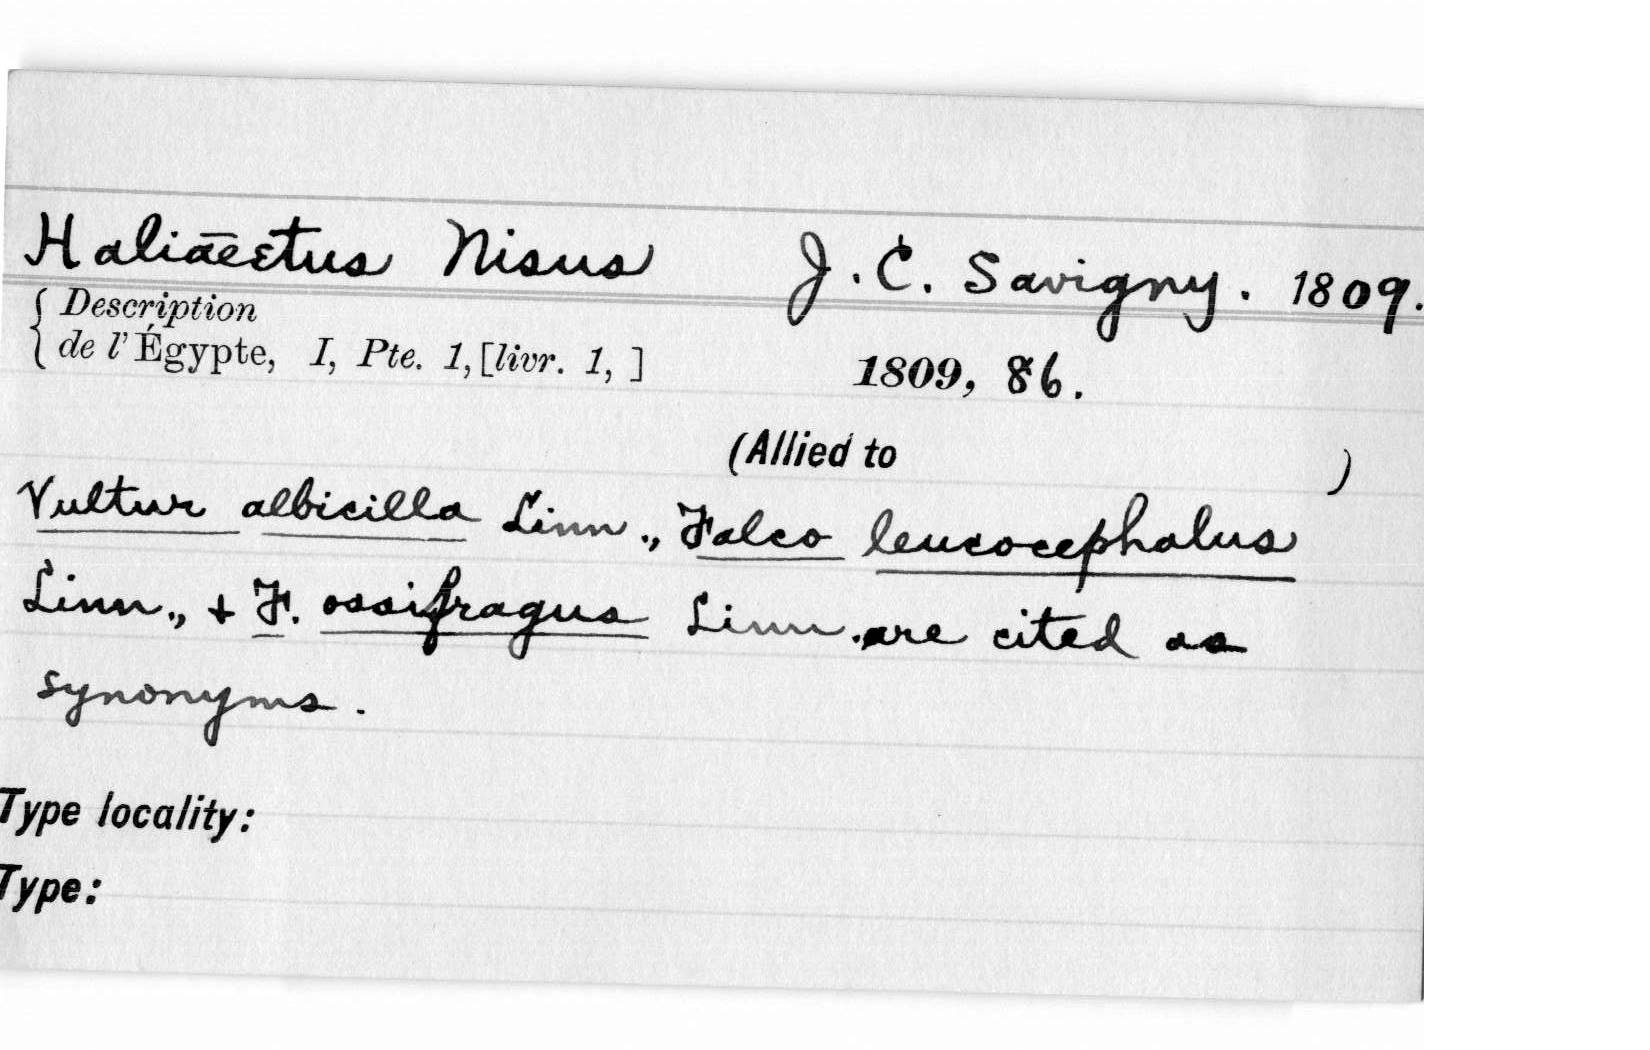 Haliāeetus Nisus J. C. Savigny. 1809.
{ Description
de l'Égypte, I, Pte. 1, [livr. 1, ] 1809, 86.
(Allied to )
Vultur albicilla Linn., Falco leucocephalus
Linn., + F. ossifragus Linn. are cited as
synonyms.
Type locality:
Type: